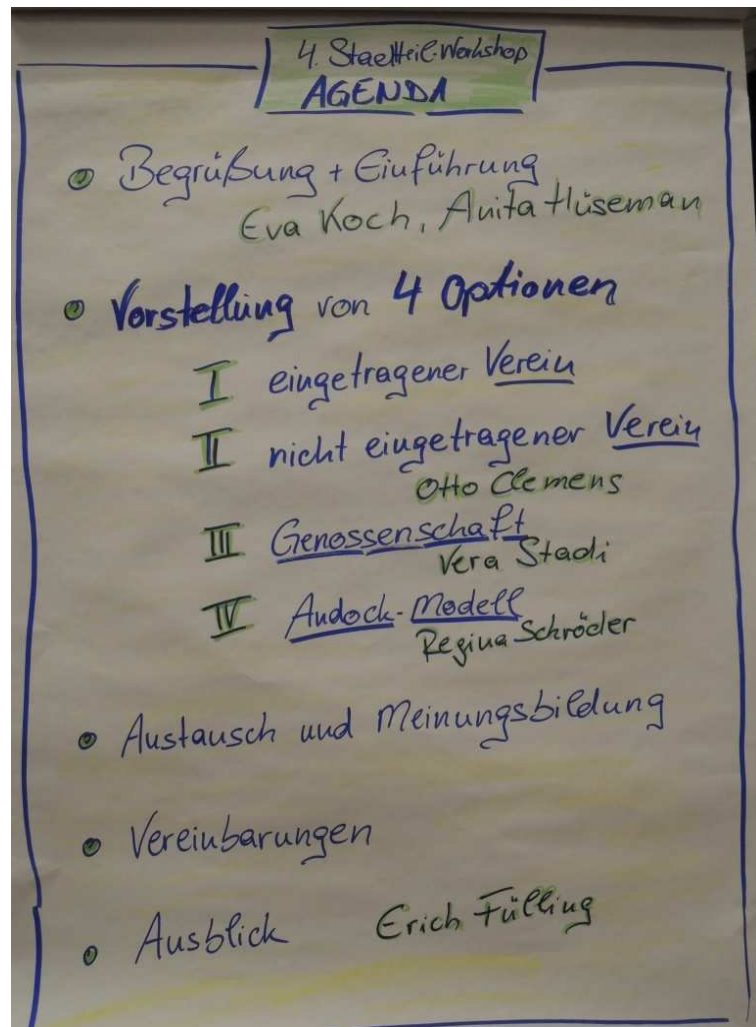 4. Stadtteil-Workshop
AGENDA
Begrüßung + Einführung
Eva Koch, Anita Hüseman
Vorstellung von 4 Optionen
I eingetragener Verein
II nicht eingetragener Verein
Otto Clemens
III Genossenschaft
Vera Stadi
IV Andock-Modell
Regina Schröder
Austausch und Meinungsbildung
Vereinbarungen
Ausblick Erich Fülling